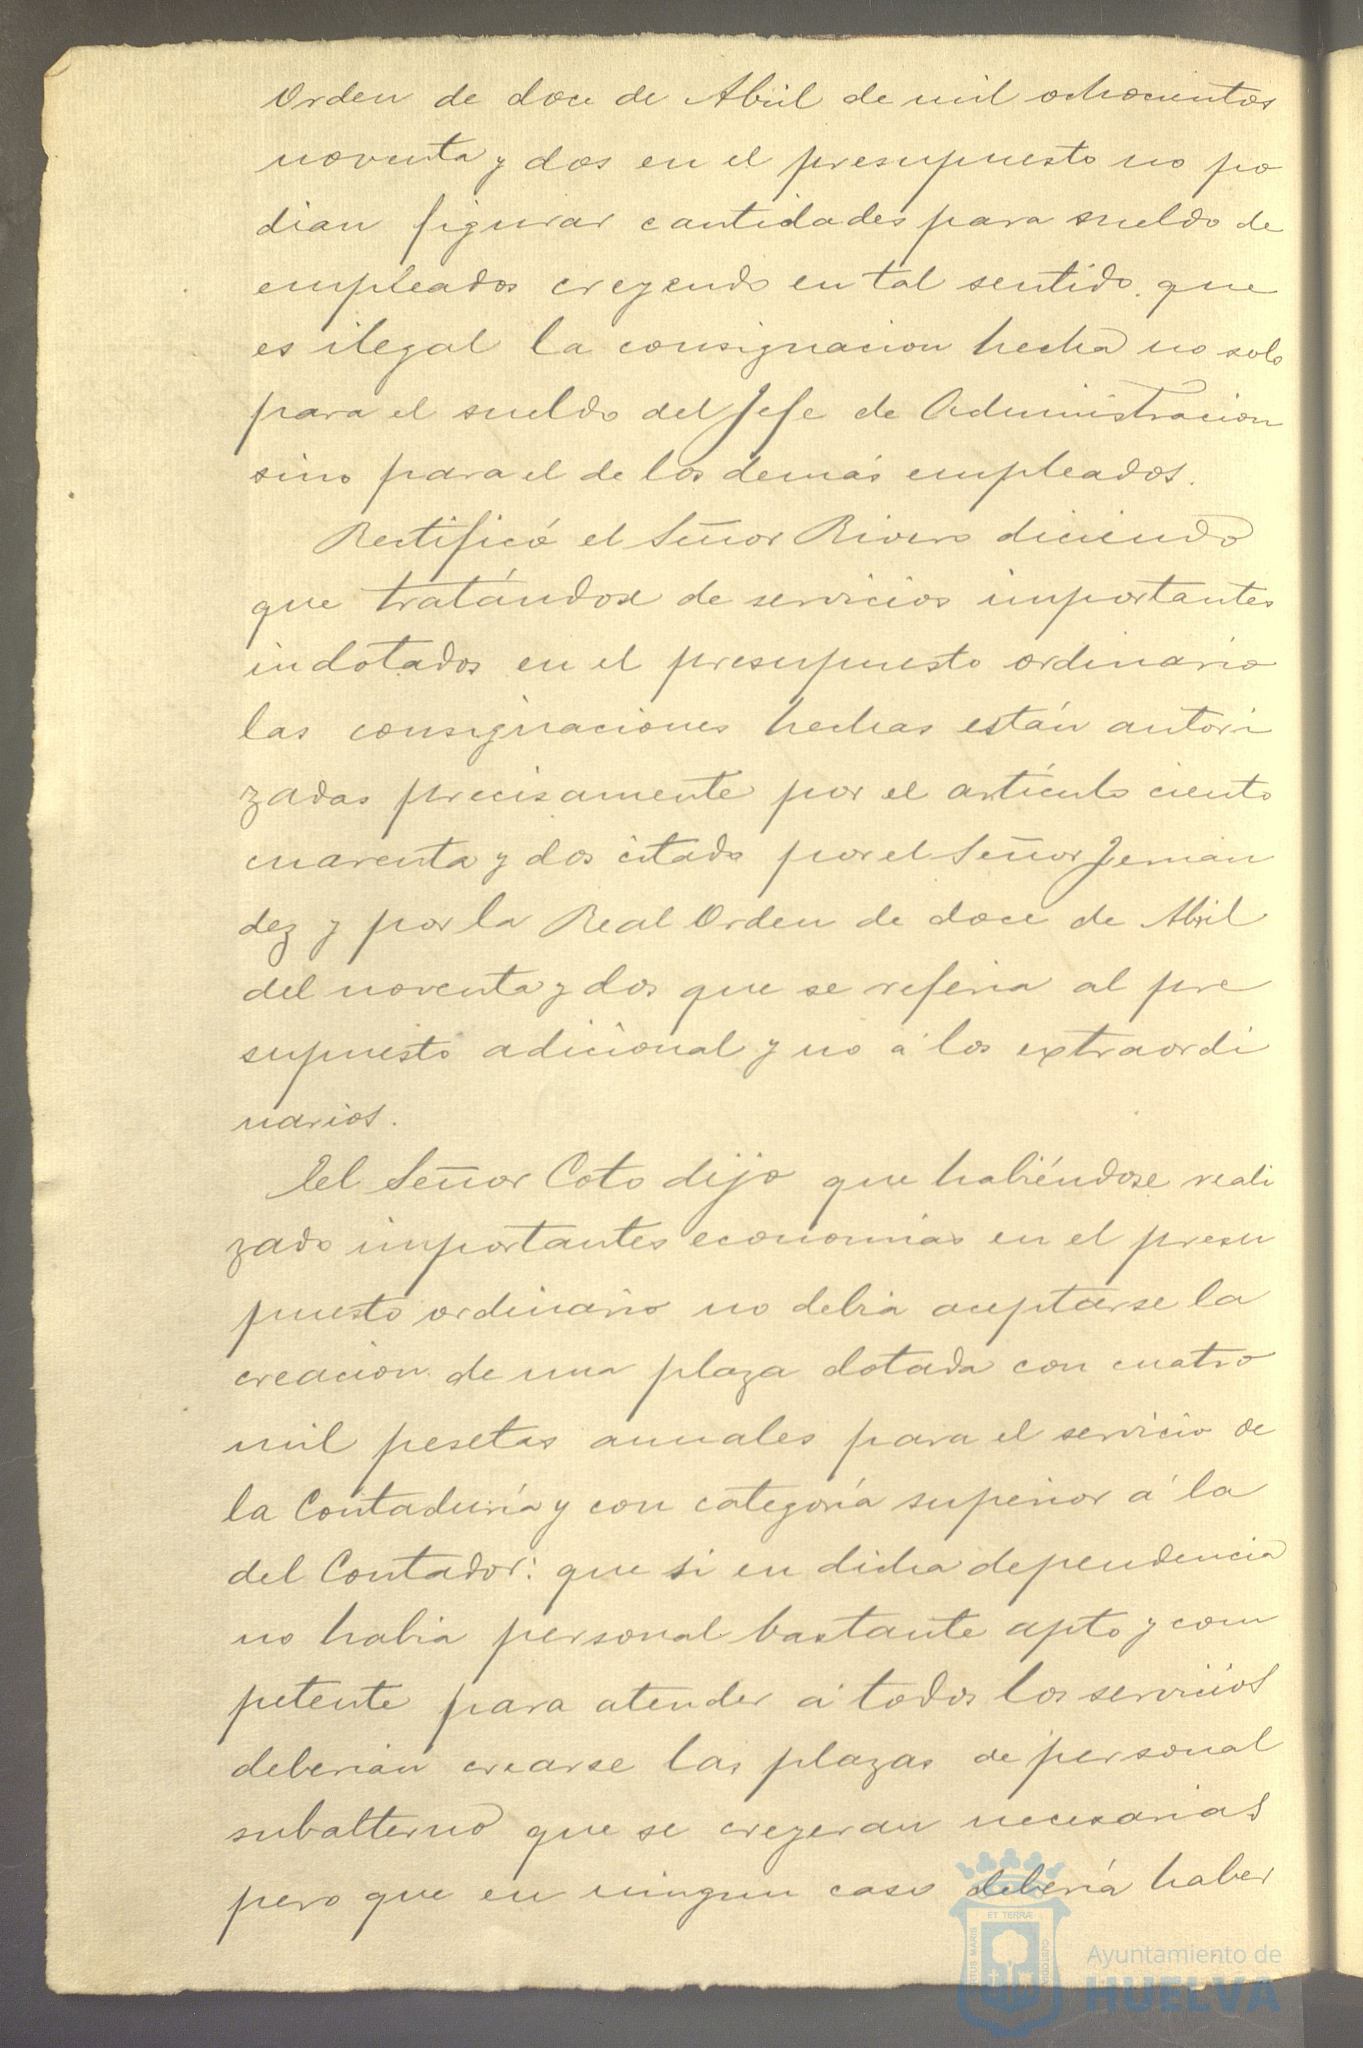 Orden de doce de Abril de mil ochocientos
noventa y dos en el presupuesto no po
dian figurar cantidades para sueldo de
empleados creyendo en tal sentido que
es ilegal la consignacion hecha no solo
para el sueldo del Jefe de Administracion
sino para el de los demás empleados.
Rectificó el Señor Rivero diciendo
que tratándose de servicios importantes
indotados en el presupuesto ordinario
las consignaciones hechas están autori
zadas precisamente por el artículo ciento
cuarenta y dos citado por el Señor Fernan
dez y por la Real Orden de doce de Abril
del noventa y dos que se referia al pre
supuesto adicional y no á los extraordi
narios.
El Señor Coto dijo que habiéndose reali
zado importantes economias en el presu
puesto ordinario no debia aceptarse la
creacion de una plaza dotada con cuatro
mil pesetas anuales para el servicio de
la Contaduría y con categoría superior á la
del Contador: que si en dicha dependencia
no habia personal bastante apto y com
petente para atender á todos los servicios
deberian crearse las plazas de personal
subalterno que se creyeran necesarias
pero que en ningun caso debería haber
ET TERRÆ
PORTUS MARIS
CUSTODIA
Ayuntamiento de
HUELVA